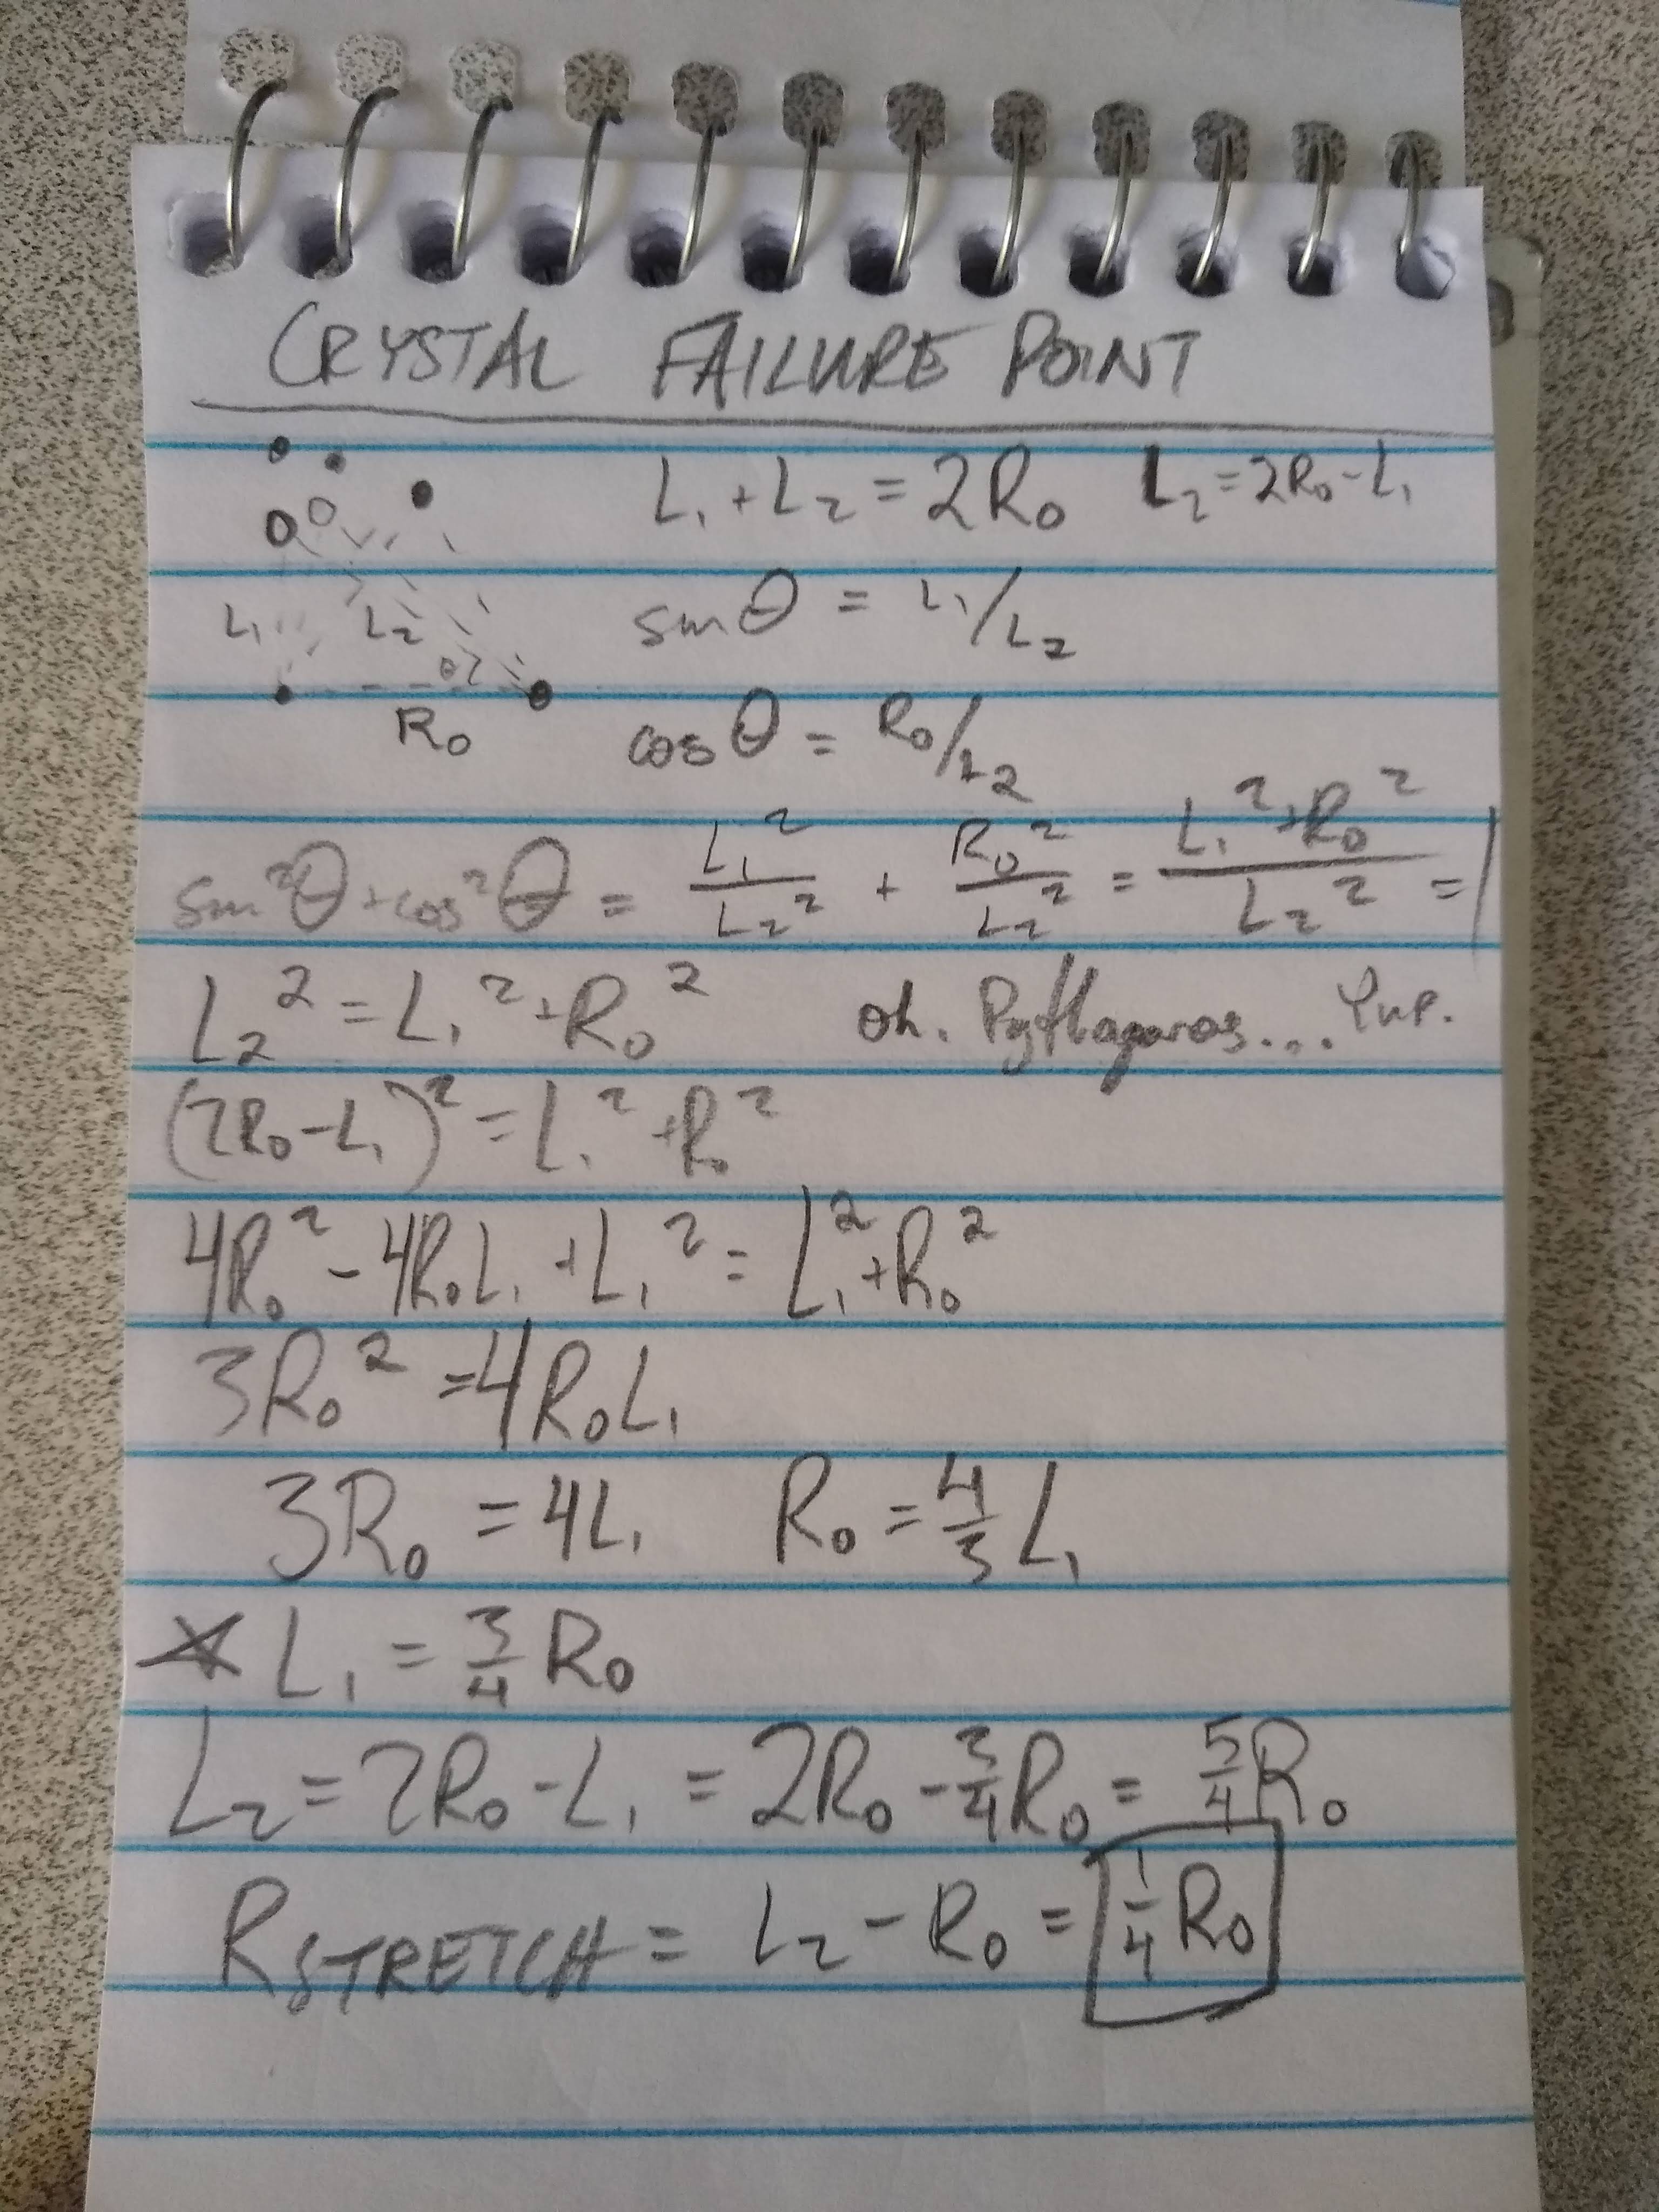 CRYSTAL FAILURE POINT
L₁ + L₂ = 2R₀ L₂ = 2R₀ - L₁
sin θ = L₁/L₂
L₁ L₂
θ
R₀
cos θ = R₀/L₂
sin²θ + cos²θ = L₁²/L₂² + R₀²/L₂² = (L₁² + R₀²)/L₂² = 1
L₂² = L₁² + R₀² oh. Pythagoras... Yup.
(2R₀ - L₁)² = L₁² + R₀²
4R₀² - 4R₀L₁ + L₁² = L₁² + R₀²
3R₀² = 4R₀L₁
3R₀ = 4L₁ R₀ = 4/3 L₁
★ L₁ = 3/4 R₀
L₂ = 2R₀ - L₁ = 2R₀ - 3/4 R₀ = 5/4 R₀
R STRETCH = L₂ - R₀ = 1/4 R₀